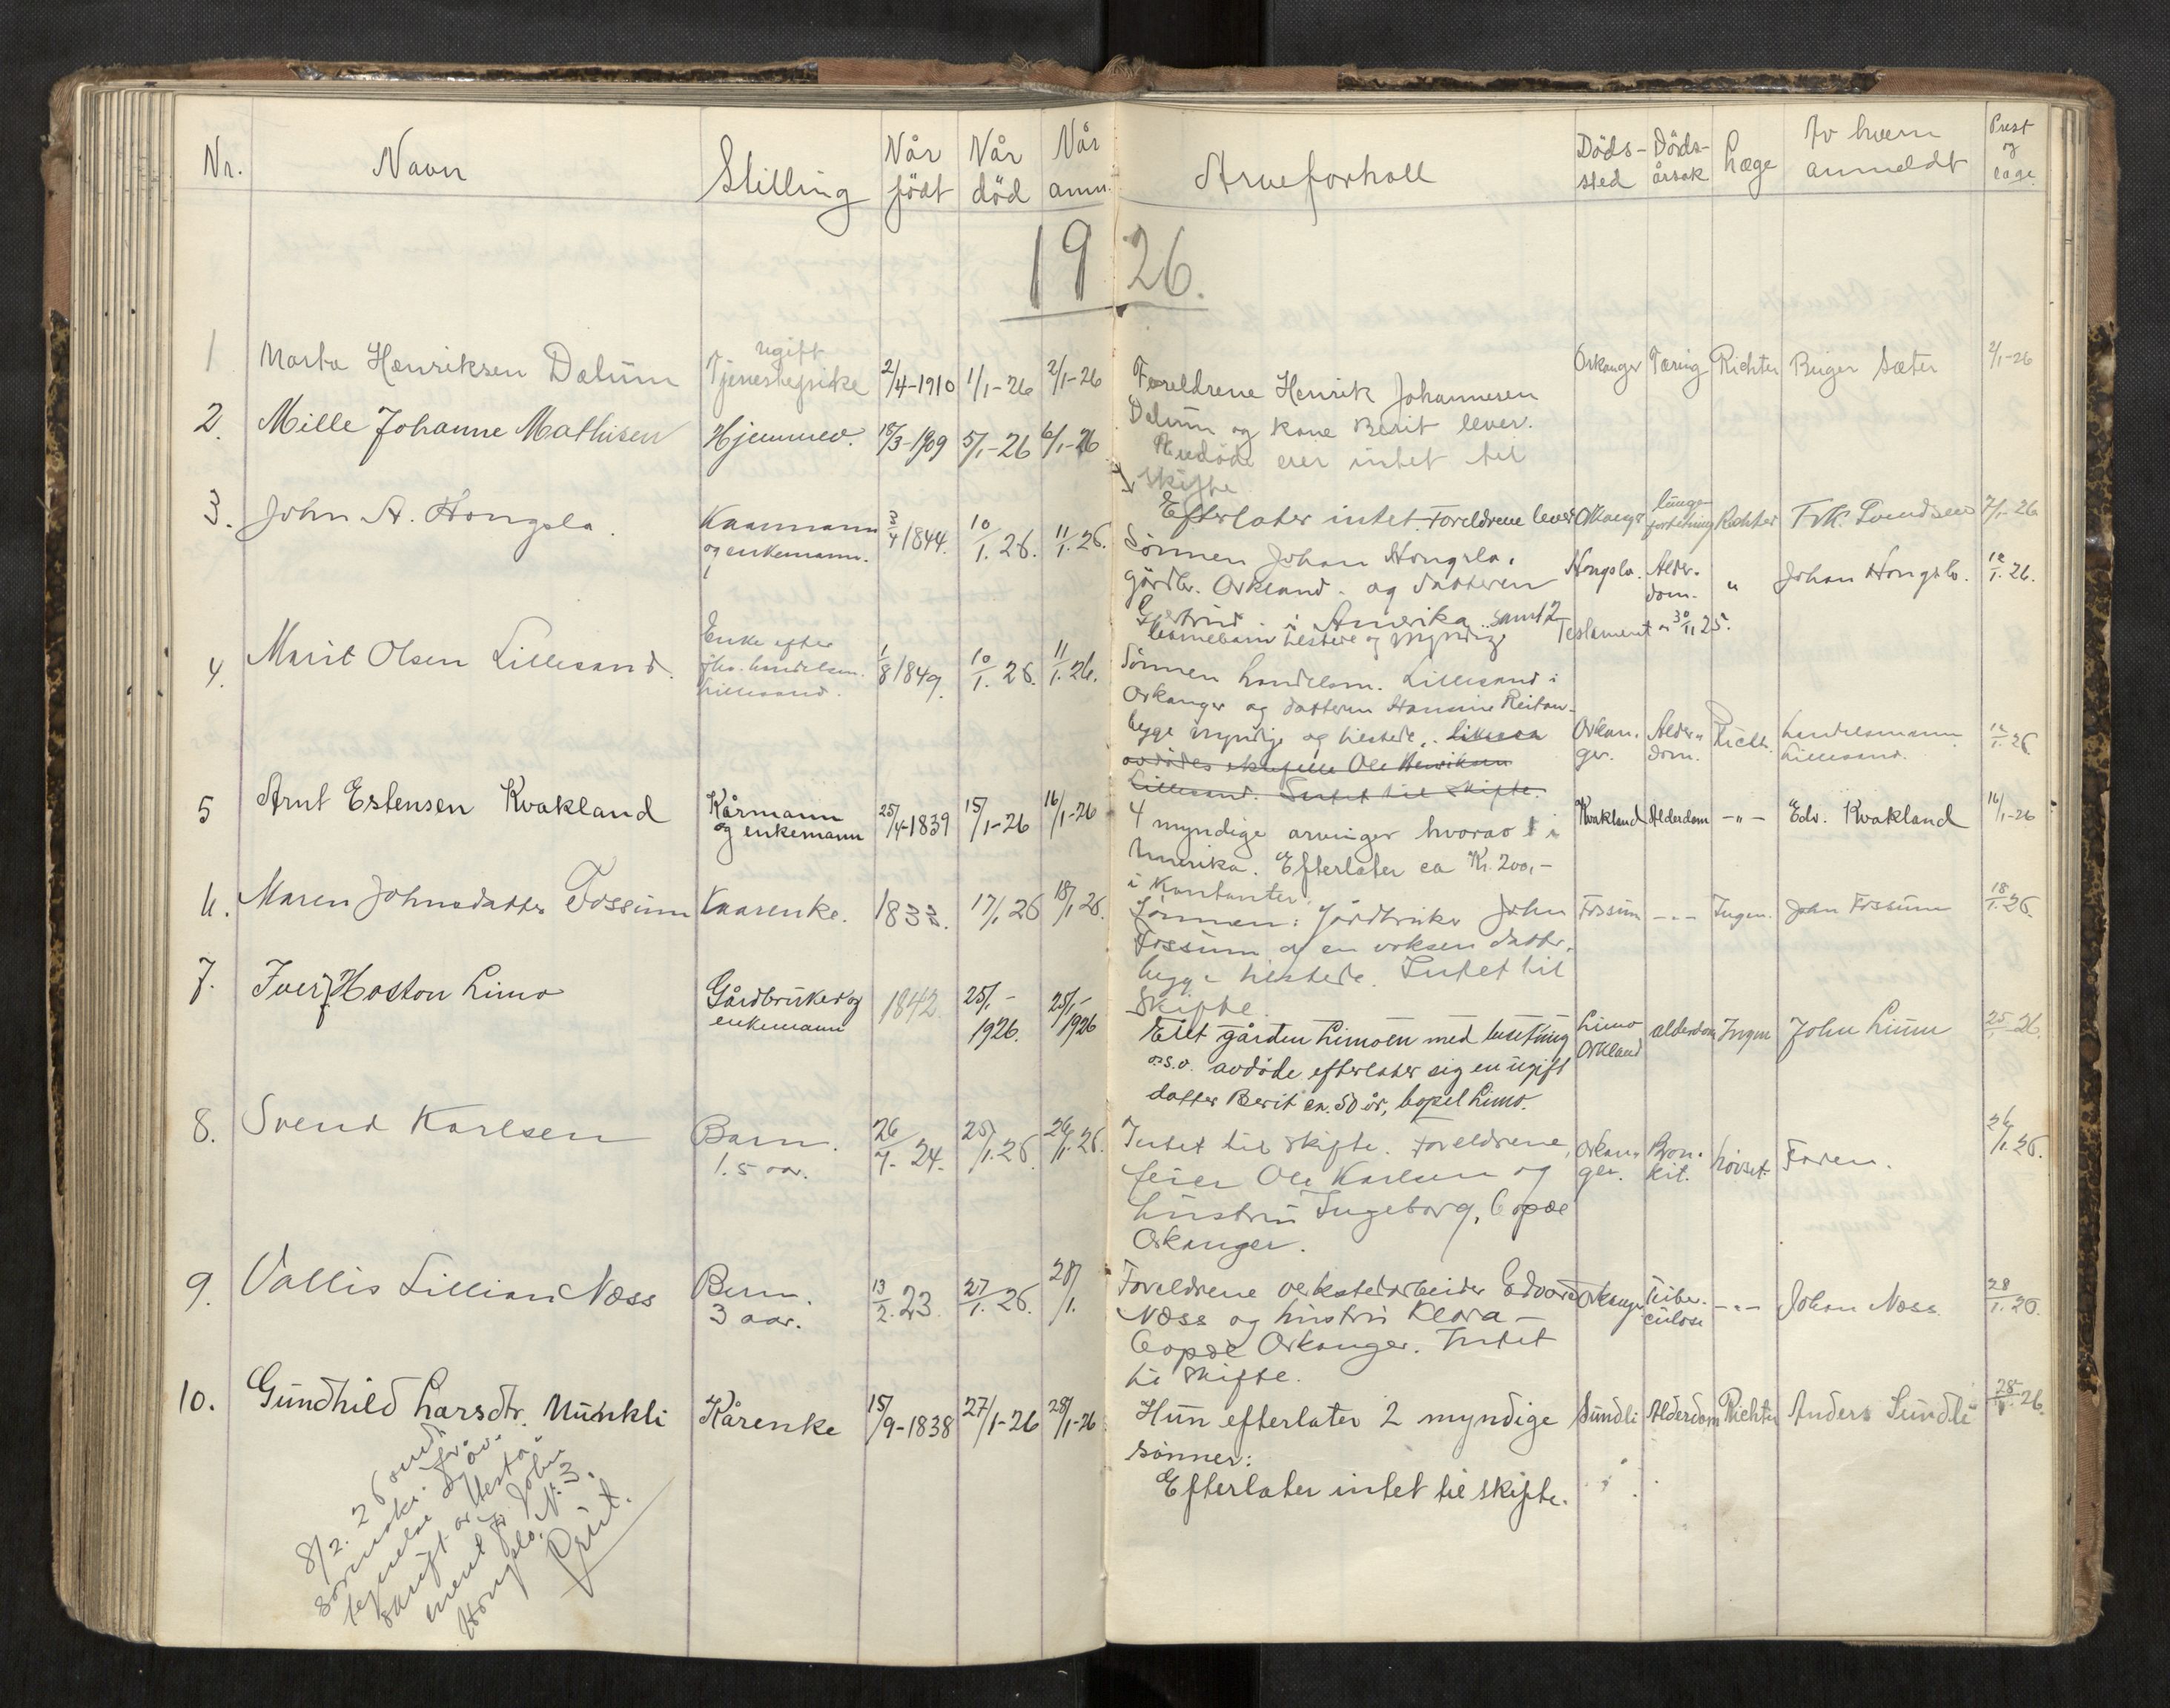 Nr. Navn Stilling Når født Når død Når anm. Arveforhold Døds- sted Døds- årsak Læge Av hvem anmeldt Prest og læge
1926.
1 Marta Henriksen Dalum ugift Tjenestepike 2/4-1910 1/1-26 2/1-26
Foreldrene Henrik Johannesen
Dalum og kone Berit lever.
Avdøde eier intet til
skifte
Orkanger Tæring Richter Birger Sæter 2/1-26
2. Mille Johanne Mathisen Hjemmev. 18/3-1909 5/1-26 6/1-26
Efterlater intet. Foreldrene lever Orkanger lunge- Richter Frk. Svendsen 7/1-26
3. John A. Hongslo. Kaarmann og enkemann. 3/4 1844. 10/1. 26. 11/1. 26.
Sønnen Johan Hongslo,
gårdbr. Orkland. og datteren
Gjertrud i Amerika. samt 2
barnebarn tilstede og myndige Testament av 30/11 25.
Hongslo. Alder- dom. " Johan Hongslo. 12/1. 26.
4. Marit Olsen Lillesand. Enke efter handelsm. Lillesand. 1/8 1849. 10/1. 26. 11/1. 26.
Sønnen handelsm. Lillesand i
Orkanger og datteren Hansine Reitan-
begge myndige og tilstede. likesaa
avdødes ektefelle Ole Henriksen
Lillesand. Intet til skifte.
Orkan- ger. Alder- dom. Richt. handelsmann Lillesand. 12/1. 26
5 Arnt Estensen Kvakland Kårmann og enkemann 25/4-1839 15/1-26 16/1-26
4 myndige arvinger hvorav 1 i
Amerika. Efterlater ca Kr. 200,-
i kontanter.
Kvakland Alderdom -"- Edv. Kvakland 16/1-26
6. Maren Johnsdatter Fossum Kaarenke. 1833. 17/1 26 18/1 26.
Sønnen: Jordbruker John
Fossum og en voksen datter,
begge tilstede. Intet til
skifte.
Fossum -"- Ingen. John Fossum 18/1. 26.
7. Iver Hoston Limo Gårdbruker og enkemann 1842. 25/1- 1926. 25/1- 1926
Eiet gården Limoen med besetning
o.s.v. avdøde efterlater sig en ugift
datter Berit ca. 50 år, bopel Limo.
Limo Orkland alderdom Ingen John Limo 25/1 26.
8. Svend Karlsen Barn. 1.5 aar. 26/7. 24. 25/1. 26. 26/1. 26.
Intet til skifte. Foreldrene,
feier Ole Karlsen og
hustru Ingeborg, bopæl
Orkanger.
Orkan- ger. Bron- kit. Faren. 26/1. 26.
9. Vallis Lillian Næss Barn. 3 aar. 13/2. 23. 27/1. 26. 28/1.
Foreldrene verkstedarbeider Edvard
Næss og hustru Klara -
bopæl Orkanger. Intet
til skifte.
Orkanger Tuber- culose -"- Johan Næss. 28/1. 26.
10. Gundhild Larsdtr. Munkli Kårenke 15/9-1838 27/1-26 28/1-26
Hun efterlater 2 myndige
sønner:
Efterlater intet til skifte.
Sundli Alderdom Richter Anders Sundli 28/1. 26.
8/2. 26 sendt
sorenskr. for-
tegnelse og av-
skrift av testa-
ment for John
Hongslo, N. 3.